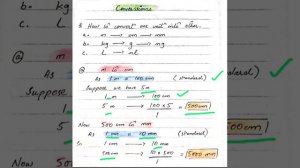 Conversions
b. kg → g → mg
c. L → ml
① How to convert one unit into other.
a. m → cm → mm
b. kg → g → mg
c. L → ml
ⓐ m to cm
As 1 m = 100 cm (standard)
Suppose we have 5 m
1 m → 100 cm
5 m → 100 × 5 / 1 = 500 cm
Now 500 cm to mm
As 1 cm = 10 mm (standard)
1 cm → 10 mm
500 cm → 10 × 500 / 1 = 5000 mm